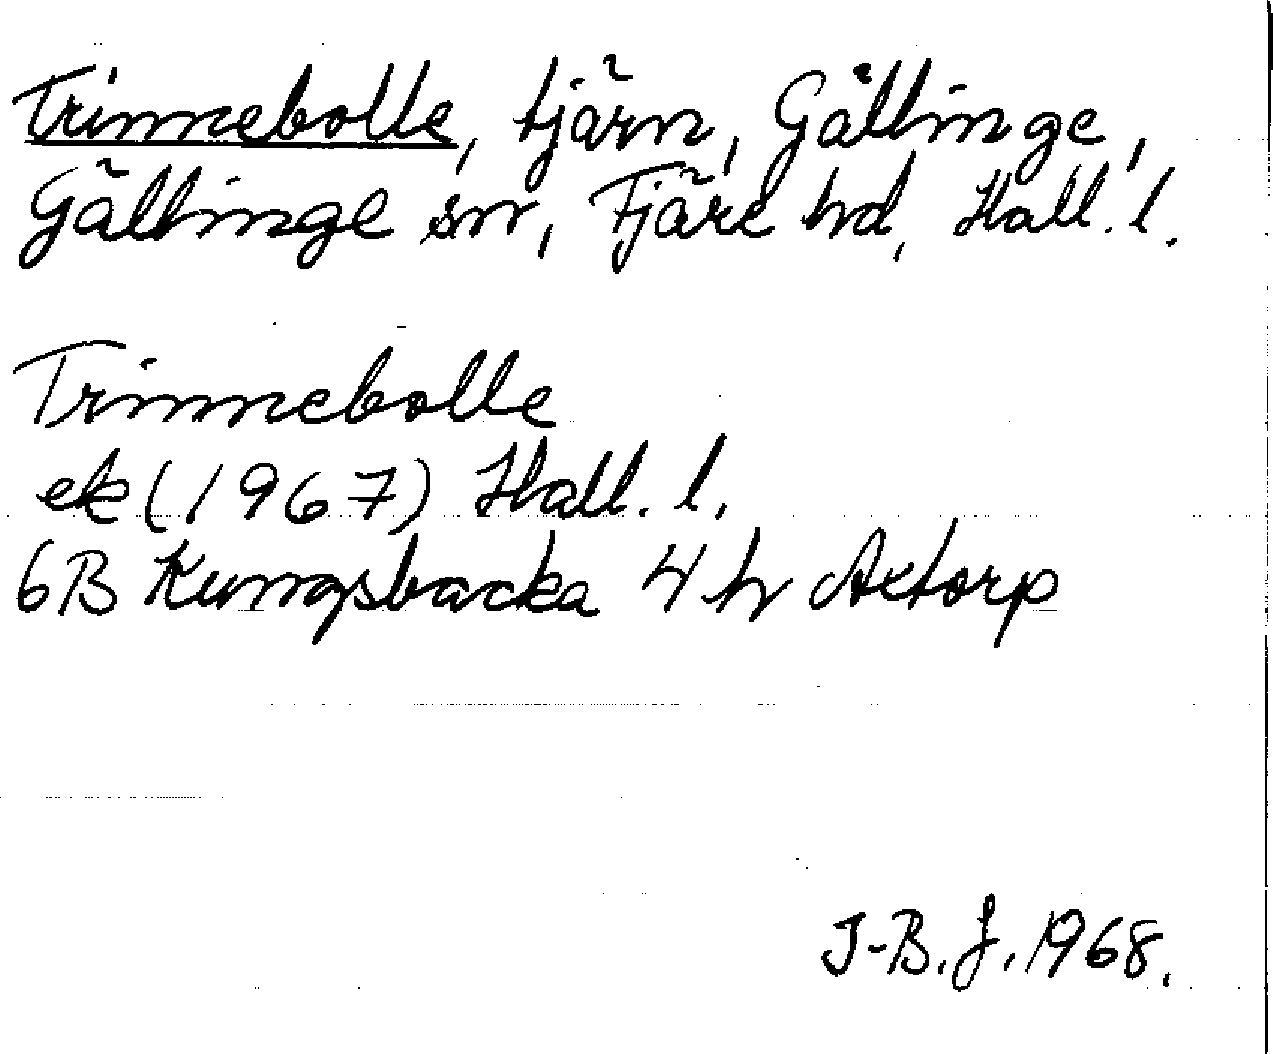 Trinnebolle, tjärn, Gällinge,
Gällinge sn, Fjäre hd, Hall. l.
Trinnebolle
ek (1967) Hall. l.
6B Kungsbacka 4 h Axtorp
J-B. J. 1968.